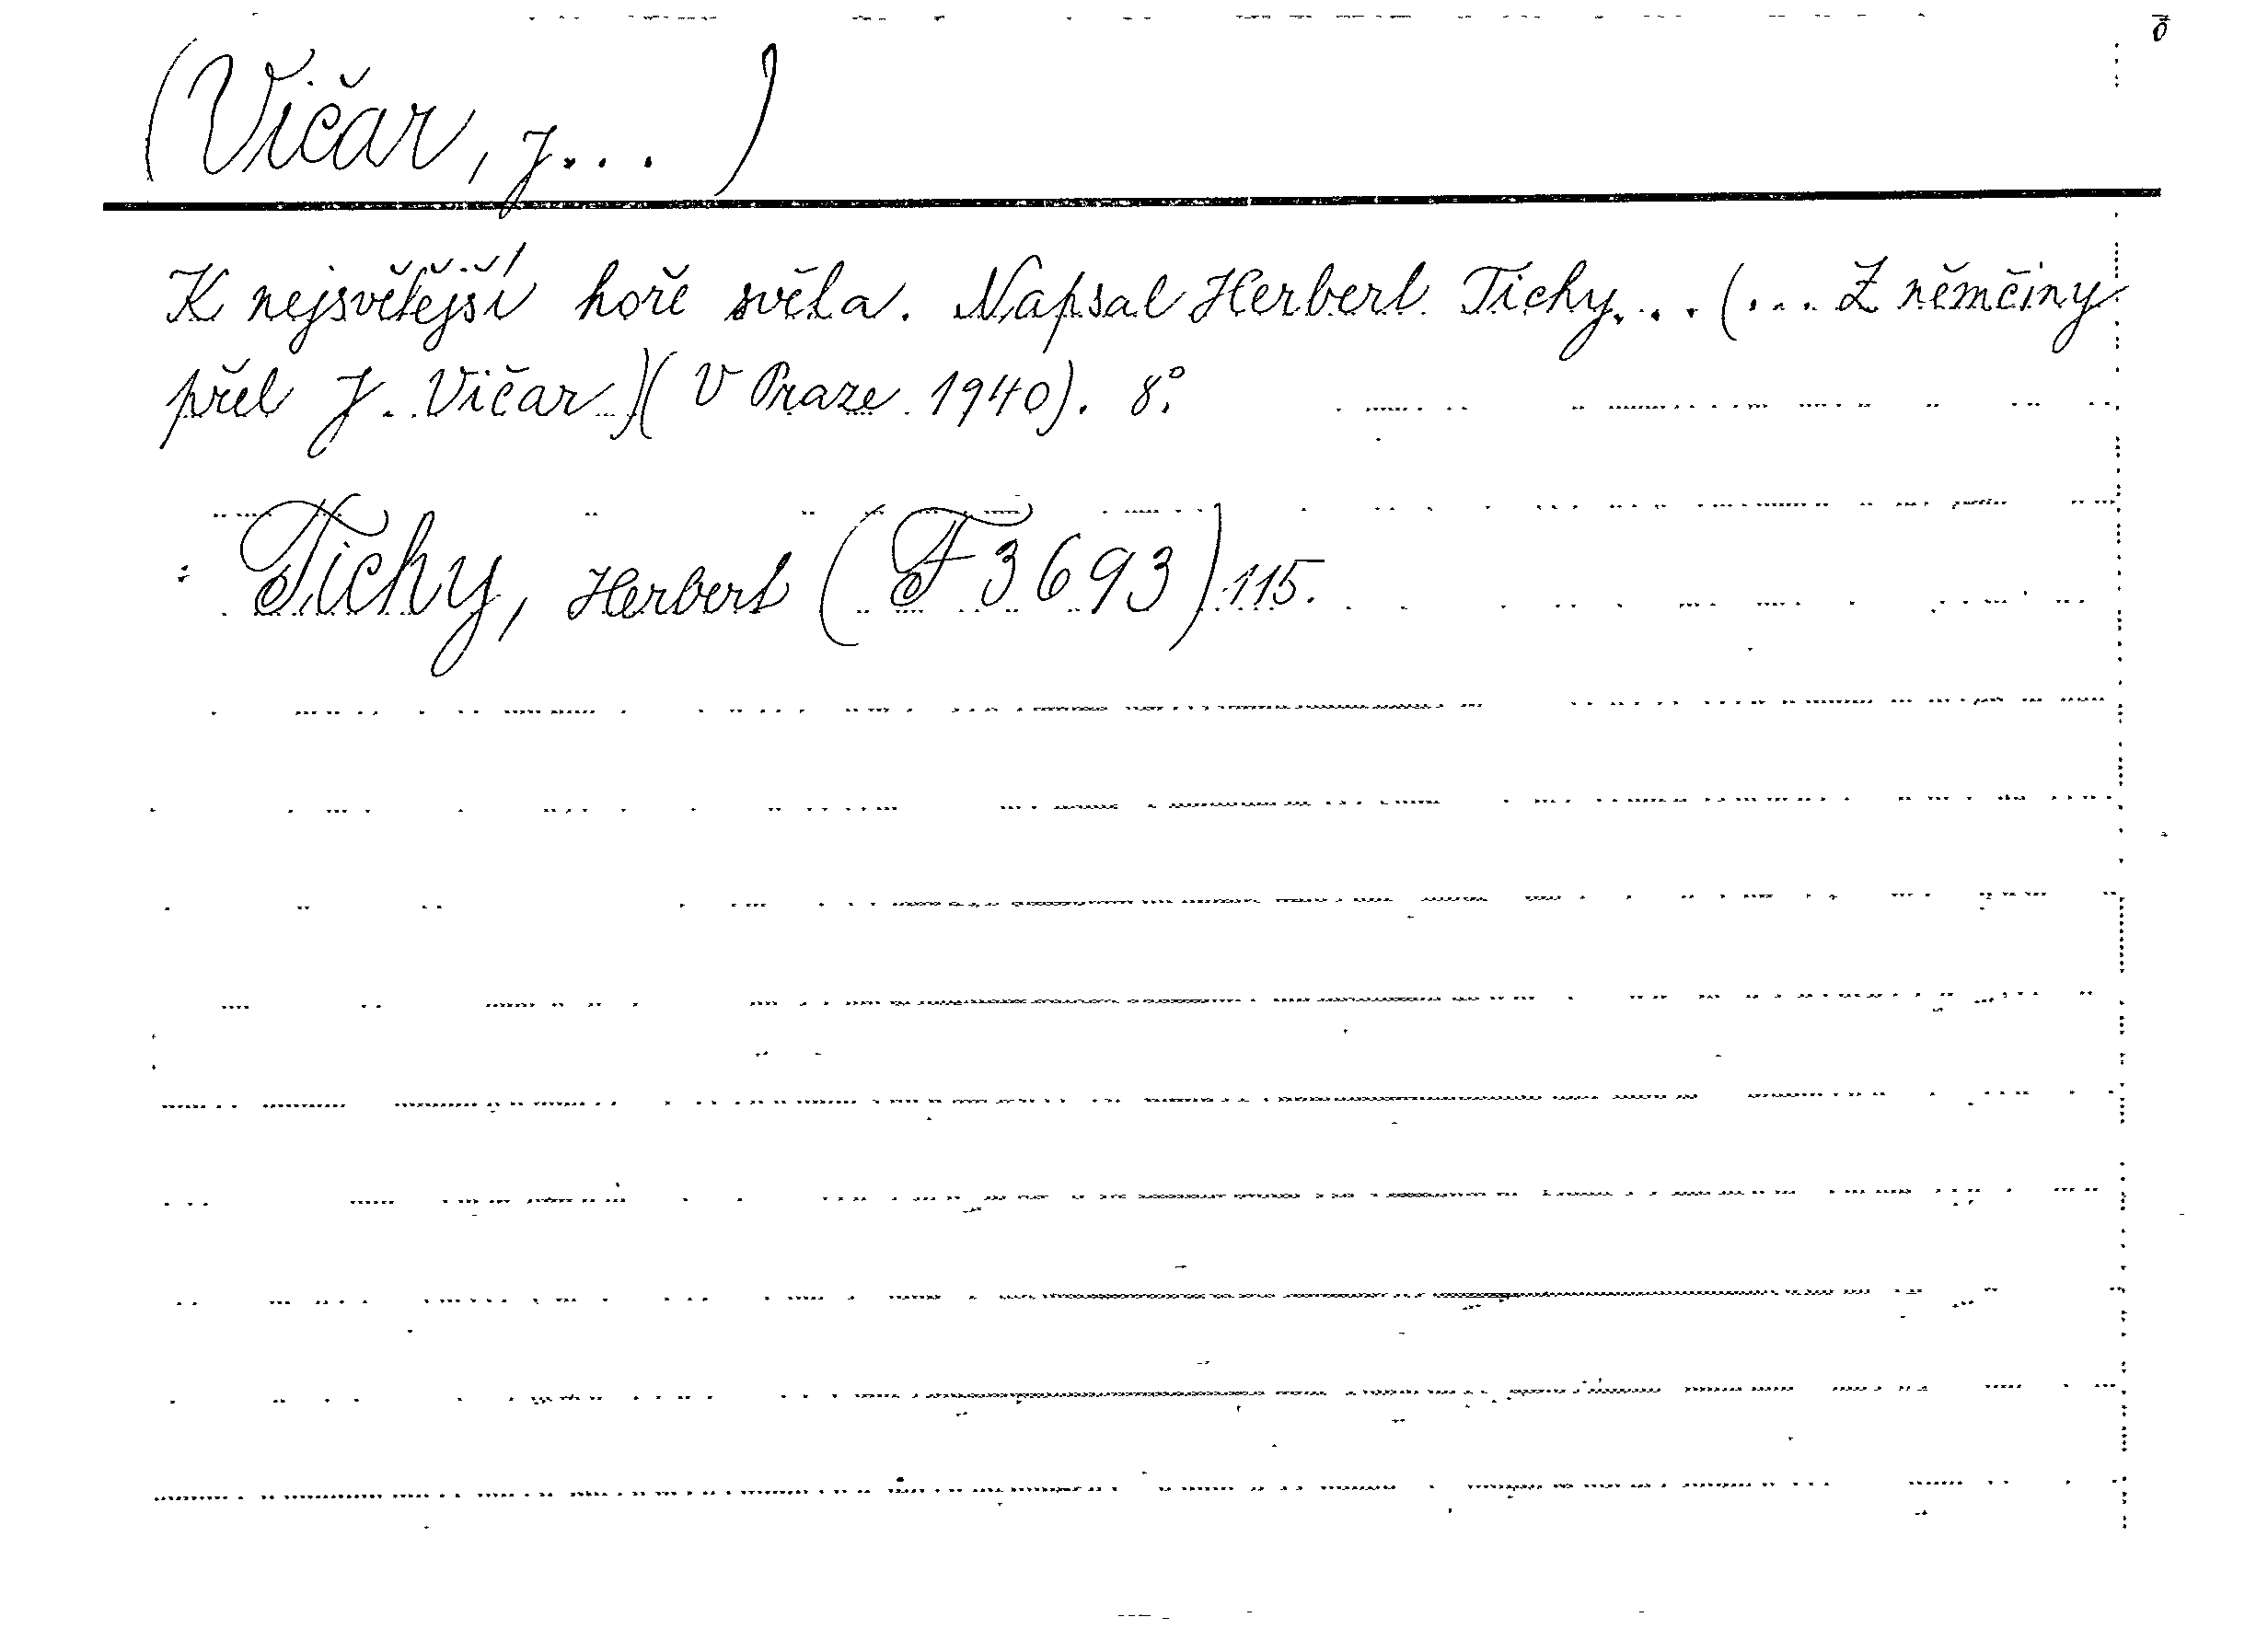 (Vičar, J... )
K nejsvětější hoře světa. Napsal Herbert Tichy... (... Z němčiny
přel J. Vičar)(V Praze 1940). 8°.
: Tichy, Herbert (F 3693) 115.